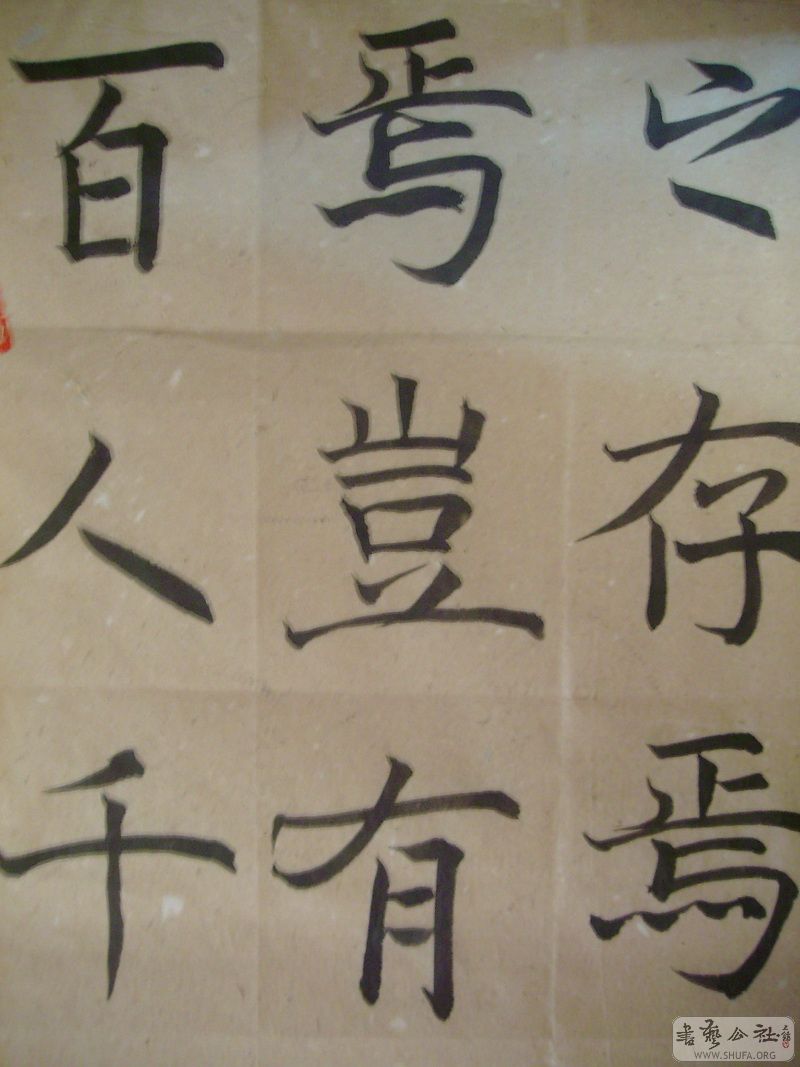 之存焉
焉豈有
百人千
書藝公社
WWW.SHUFA.ORG